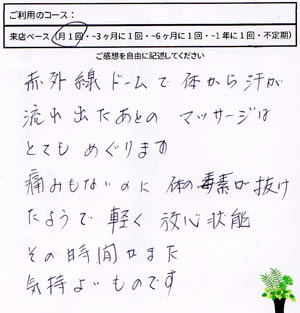 ご利用のコース：
来店ペース（月１回・~３ヶ月に１回・~６ヶ月に１回・~１年に１回・不定期）
ご感想を自由に記述してください
赤外線ドームで体から汗が
流れ出たあとの マッサージは
とても めぐります
痛みもないのに 体の毒素が抜け
たようで 軽く 放心状態
その時間がまた
気持よいものです